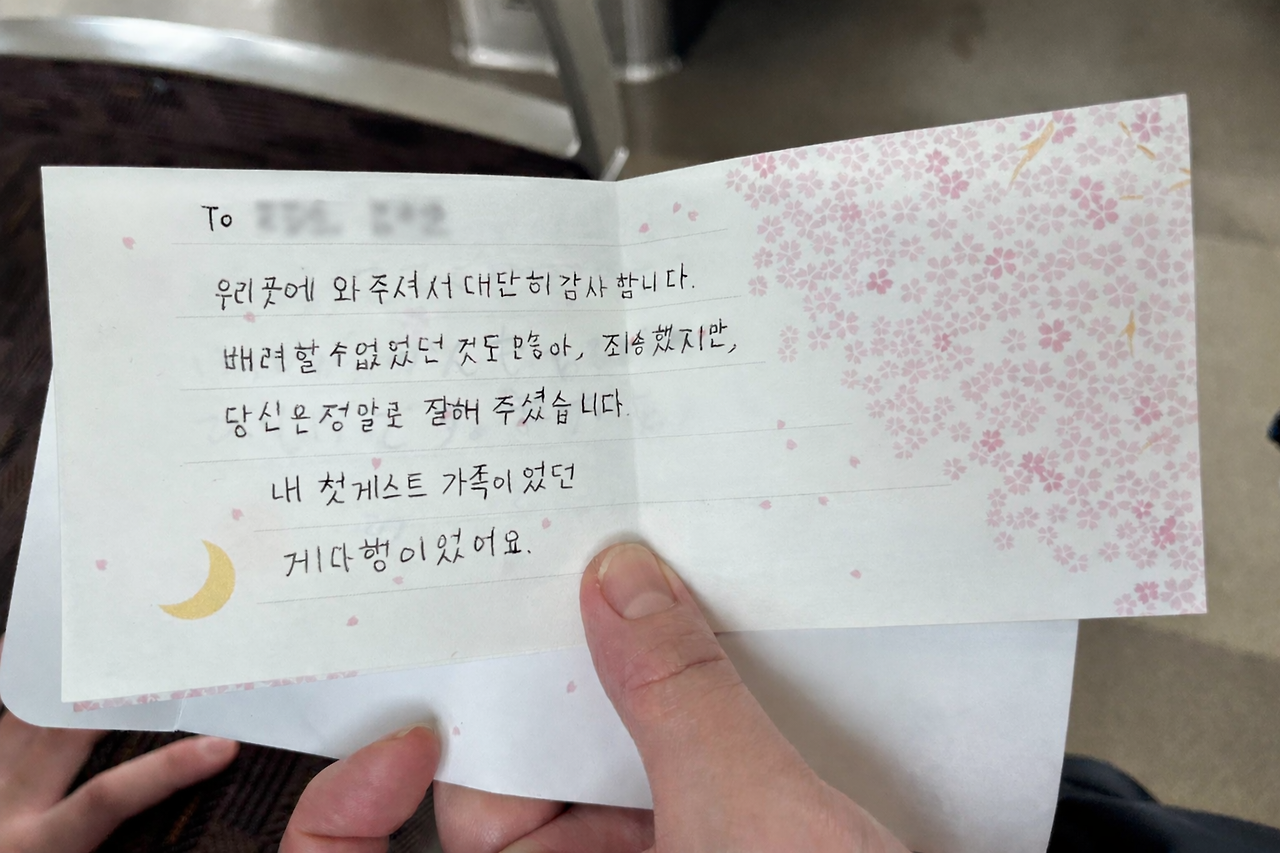 To
우리곳에 와 주셔서 대단히 감사 합니다.
배려할 수 없었던 것도 많아, 죄송했지만,
당신은 정말로 잘해 주셨습니다.
내 첫게스트 가족이었던
게다행이었어요.